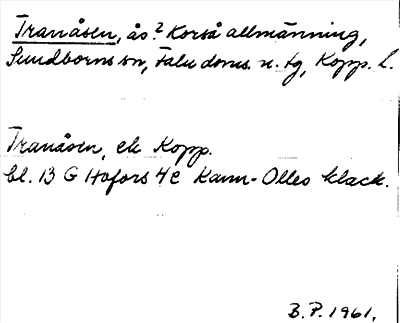 Tranåsen, ås? Korså allmänning,
Sundborns sn, Falu doms. n. tg, Kopp. l.
Tranåsen, ek Kopp.
bl. 13 G Hofors 4c Karm-Olles klack.
B.P. 1961.